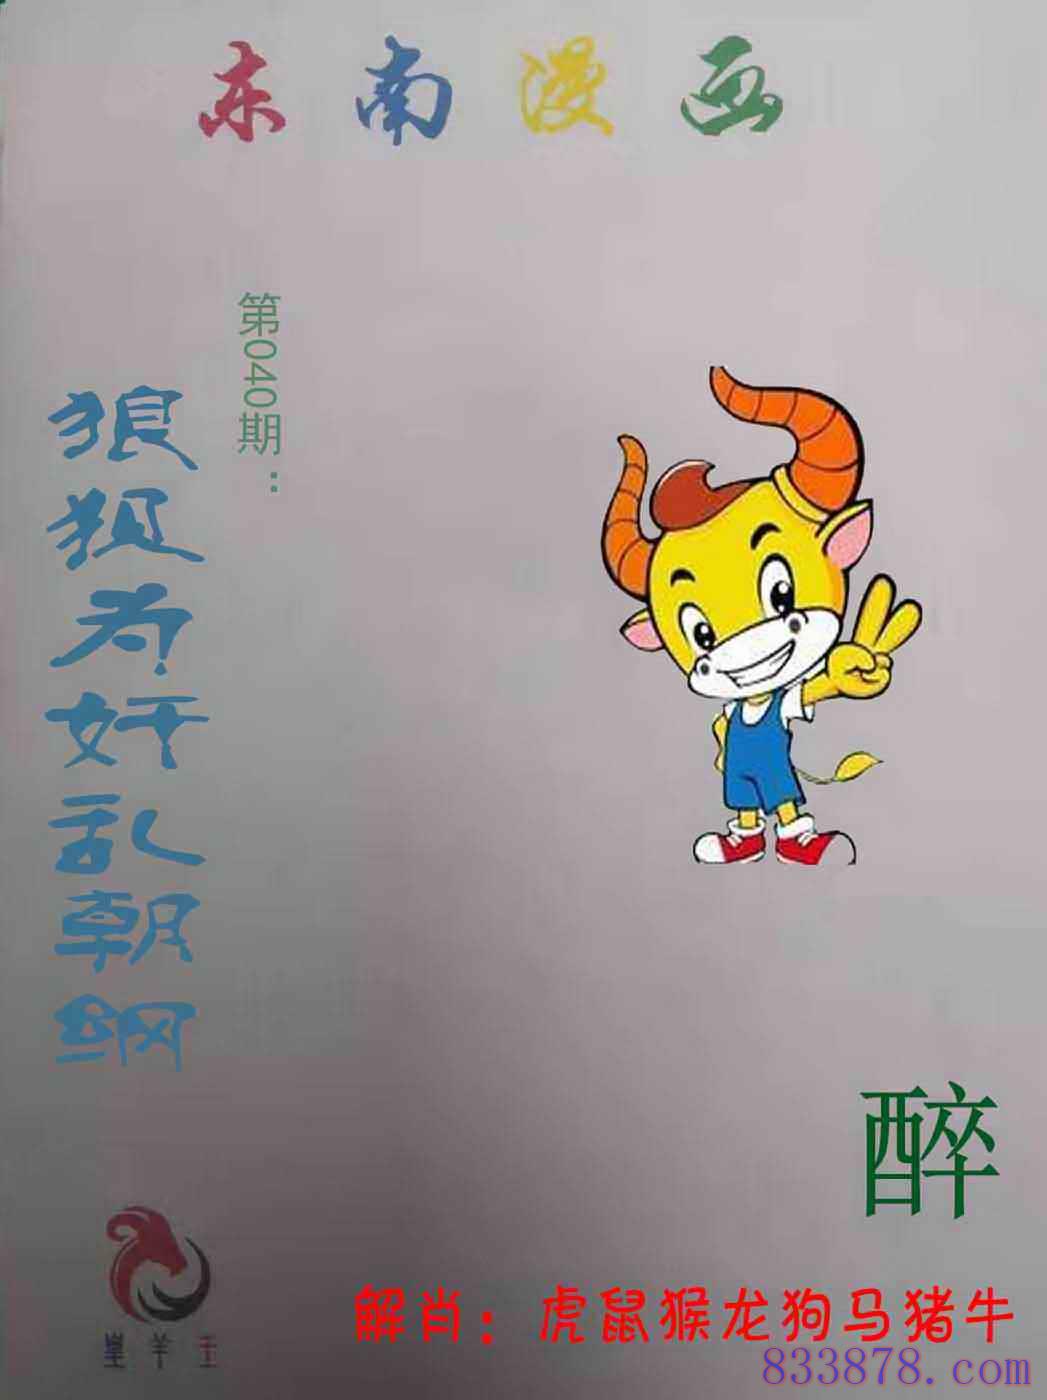 东南漫画
第040期：
狼狈为奸乱朝纲
醉
羊王
解肖：虎鼠猴龙狗马猪牛
833878.com